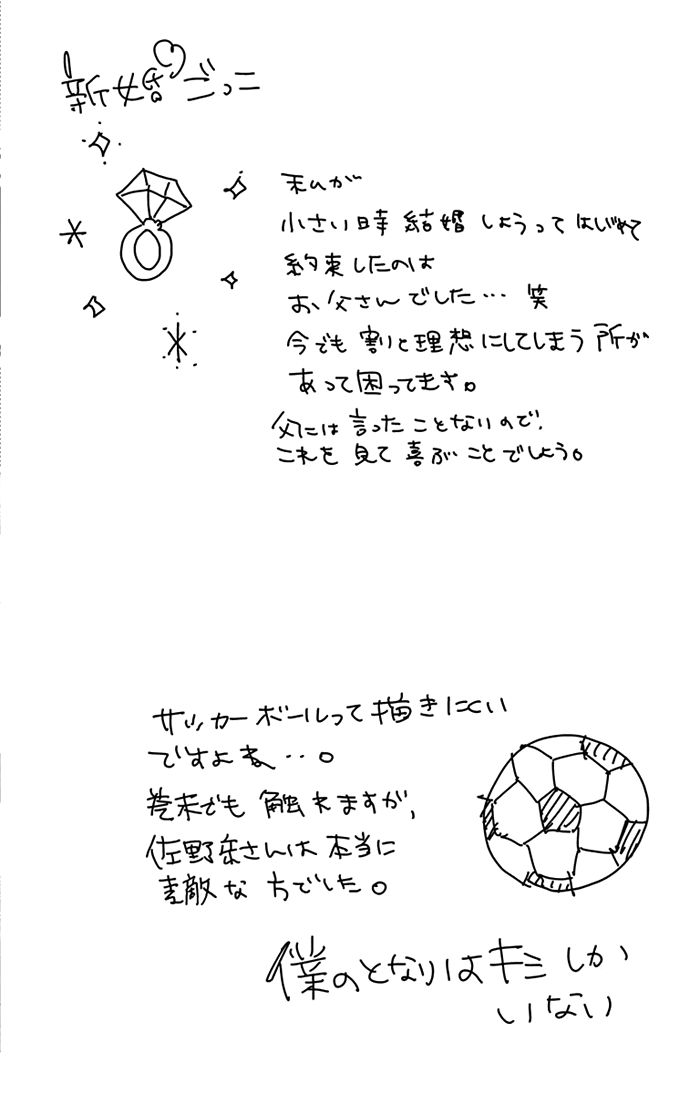 新婚ごっこ
私が
小さい時 結婚しようってはじめて
約束したのは
お父さんでした… 笑
今でも割と理想にしてしまう所が
あって困ってます。
父には言ったことないので、
これを見て喜ぶことでしょう。
サッカーボールって描きにくい
ですよね…。
巻末でも触れますが、
佐野岳さんは本当に
素敵な方でした。
僕のとなりはキミしか
いない